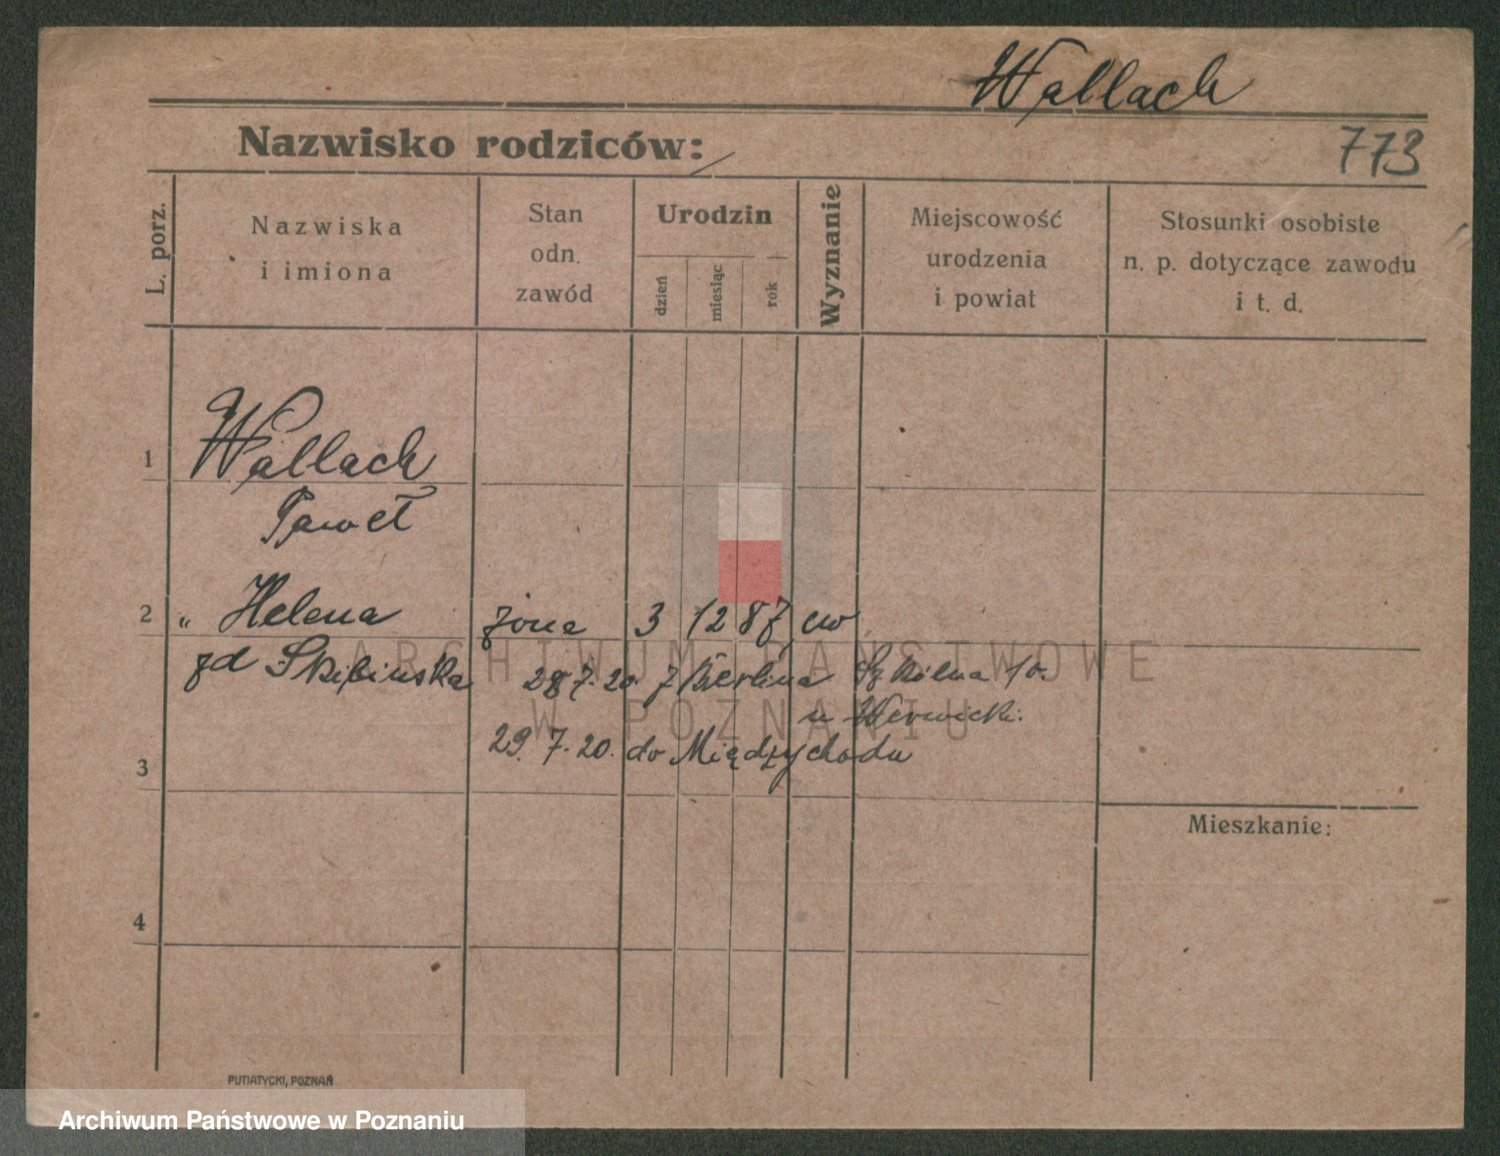 Wallach
Nazwisko rodziców:
773
L. porz.
Nazwiska
i imiona
Stan
odn.
zawód
Urodzin
dzień
miesiąc
rok
Wyznanie
Miejscowość
urodzenia
i powiat
Stosunki osobiste
n. p. dotyczące zawodu
i t. d.
1
Wallach
Paweł
2 " Helena żona 3 12 87 ew
zd Skibińska 28 7. 20. z Berlina Szkolna 10.
u Werwicki.
29. 7. 20. do Międzychodu
3
Mieszkanie:
4
PUTIATYCKI, POZNAŃ
ARCHIWUM PAŃSTWOWE
W POZNANIU
Archiwum Państwowe w Poznaniu